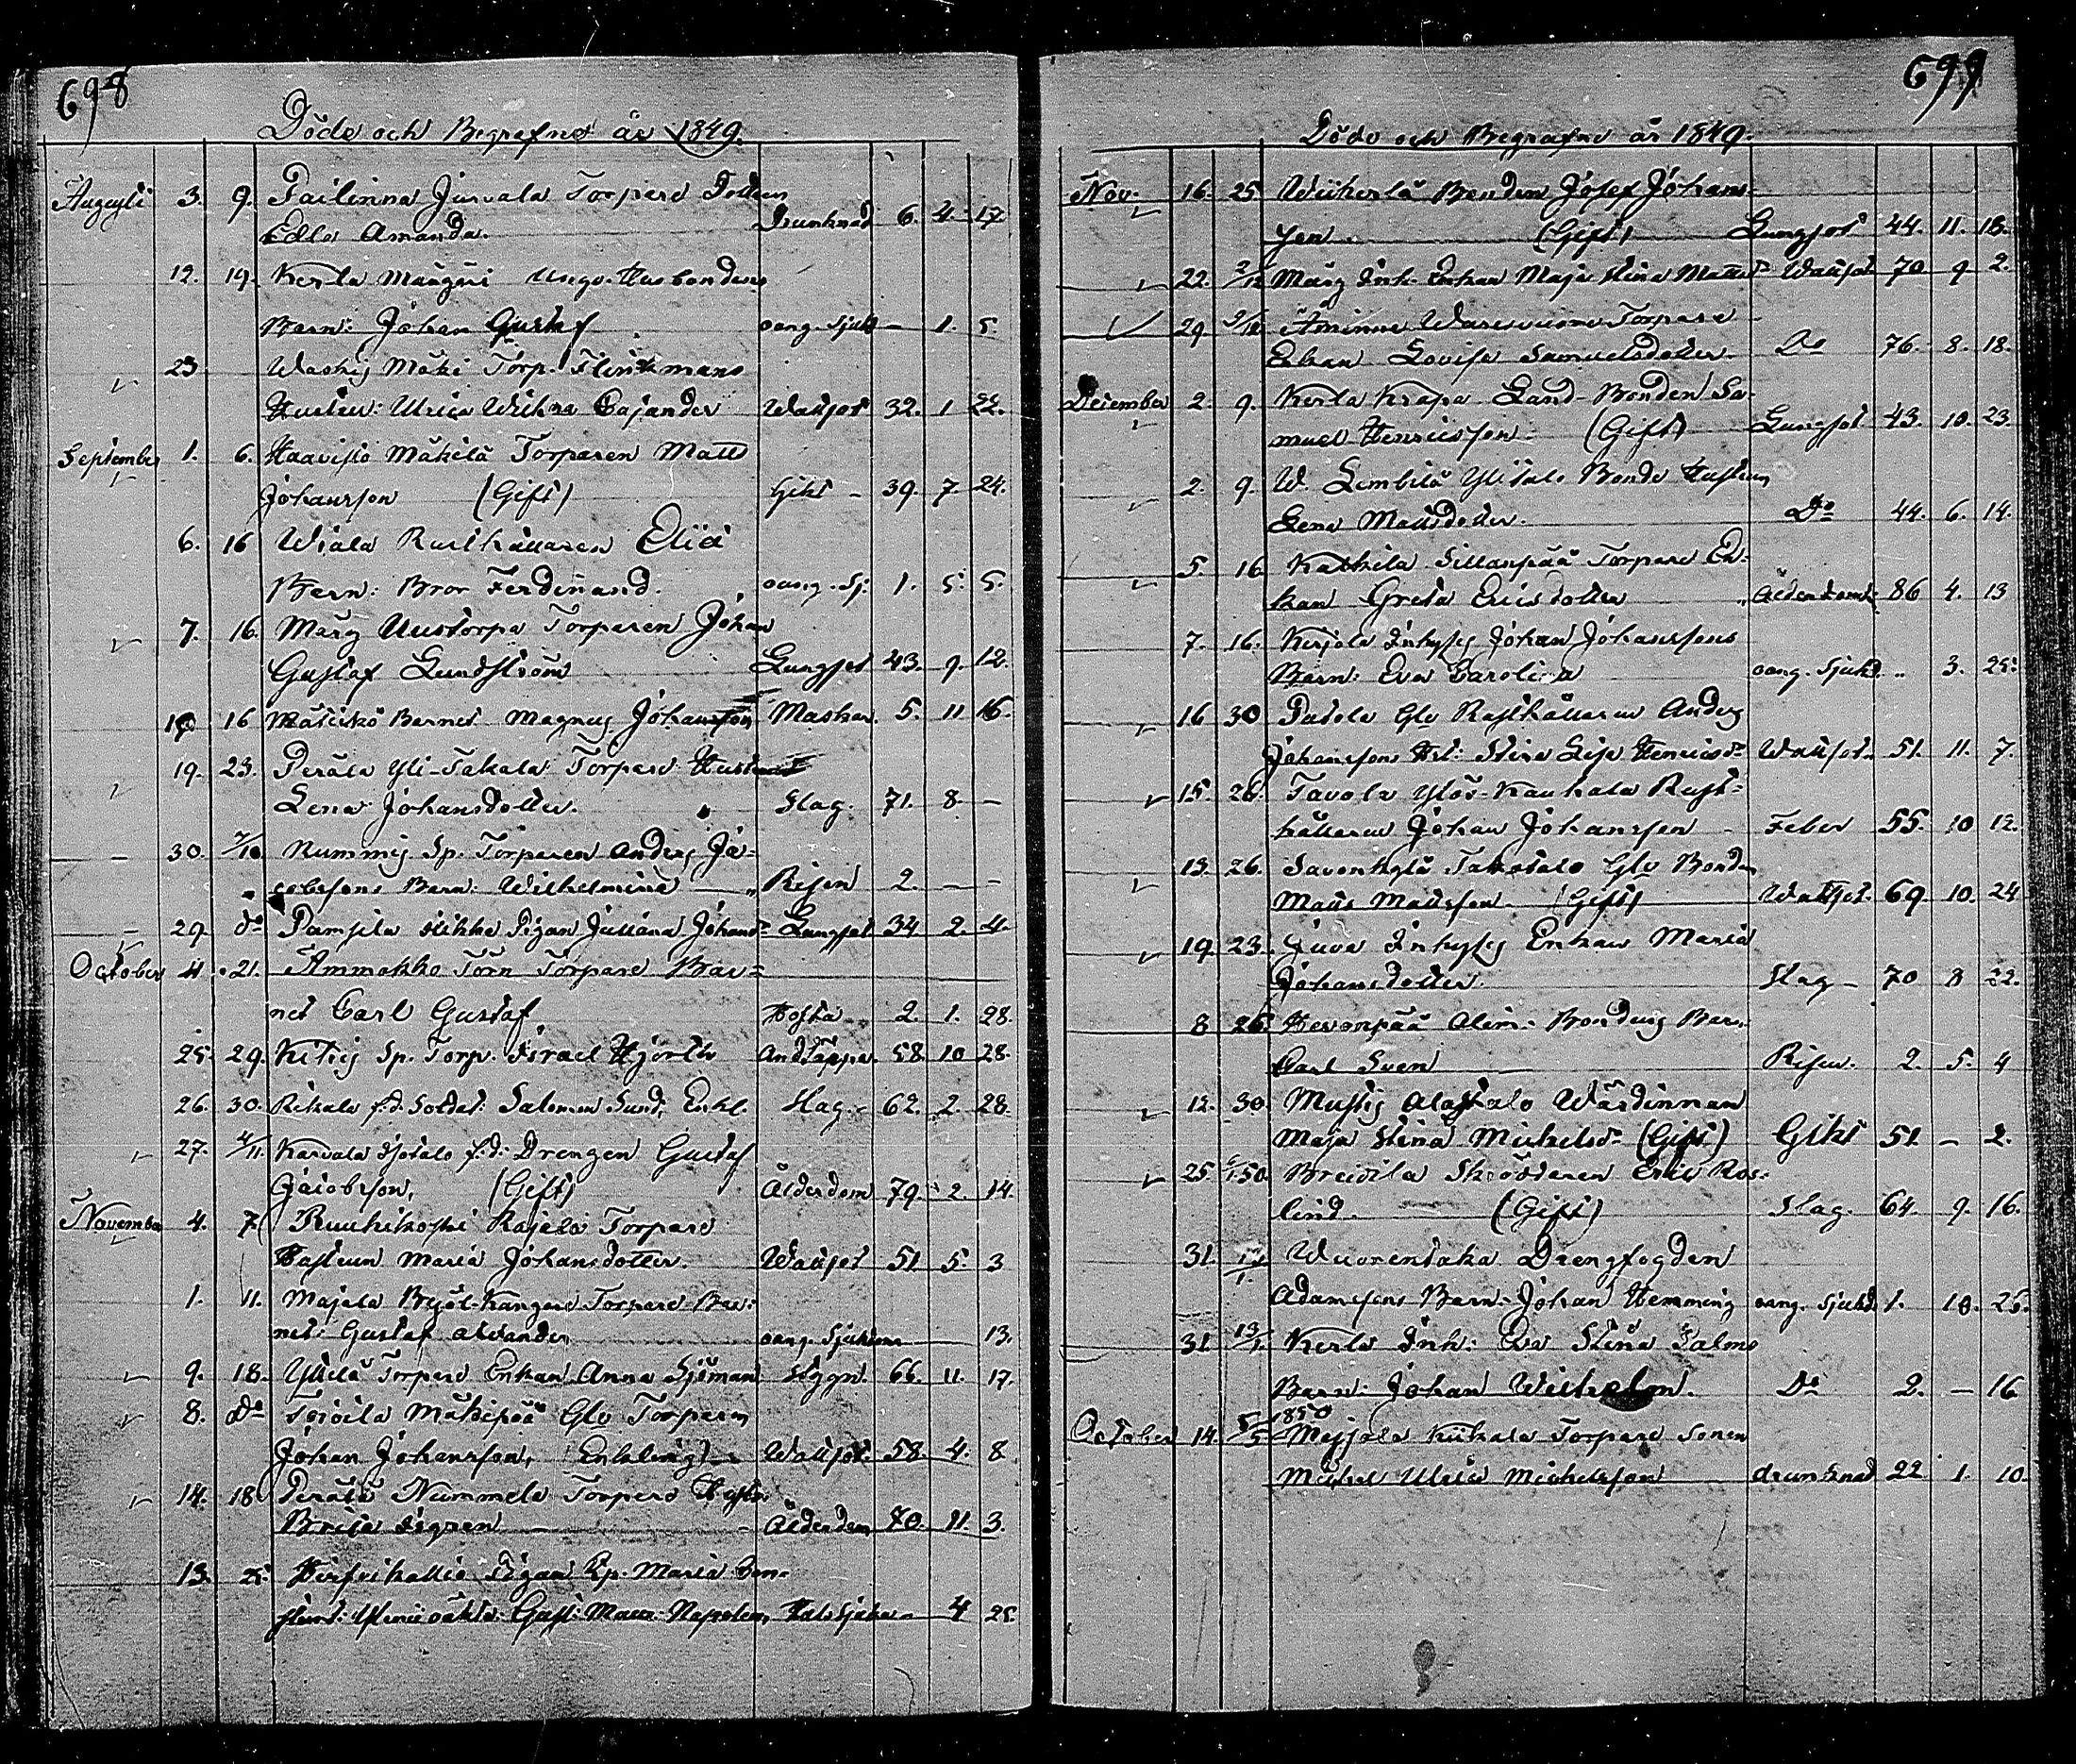 698
Döde och Begrafne år 1849.
Augusti 3. 9. Pailinna Juvala Torpare Dottren
Edla Amanda. Drunknad 6. 4. 17
12. 19. Kerla Mangsi Ungs. Husbondens
Barn: Johan Gustaf oang. Sjuk – 1. 5.
23 Waskis Mäki Torp. Flinkmans
Hustru: Ulrica Wilhna Cajander Wattsot 32. 1 22.
September 1. 6. Haavisto Mäkilä Torparen Matts
Johansson (Gift) Gikt – 39. 7. 24.
6. 16 Wiala Rusthållaren
Barn: Bror Ferdinand. oang. Sj. 1. 5. 5.
7. 16. Märy Uustorpa Torparen Johan
Gustaf Lundström Lungsot 43. 9. 12.
16 Barnet Magnus Johansson Maskar. 5. 11 16.
19. 23. Perälä Yli-Takala Torpare Hustrun
Lena Johansdotter. Slag. 71. 8. –
30. 7/10 Nummis Sp. Torparen Anders Ja-
cobssons Barn: Wilhelmina Risen 2. – –
29. do Pampila Pigan Juliana Johansdr Lungsot 34 2. 4.
October 4. 21. Ammokko Torn Torpare Bar-
net Carl Gustaf Hosta 2. 1. 28.
25. 29. Sp. Torp. Israel Hjorth Andtäppa. 58. 10 28.
26. 30. Rikala f.d. Soldat: Salomon Sund, Enkl. Slag. 62. 2. 28.
27. 4/11. Karvala f.d. Drengen Gustaf
Jacobsson, (Gift) Ålderdom 79. 2. 14.
November 4. 7 Ruuhikoski Rajala Torpare
Hustrun Maria Johansdotter. Wattsot 51 5. 3
1. 11. Majala Torpare Bar-
net: Gustaf oang. Sjukdom 13.
9. 18. Torpare Enkan Anna Sjöman Styggn. 66. 11. 17.
8. do Toivila Mäkipää Glo Torparen
Johan Johansson, (Enkling) – Wattsot. 58. 4. 8
14. 18 Perälä Nummela Torpare Hustru
Brita Sigren Ålderdom 70. 11. 3.
13. 25. Pigan Maria
Halssjuka – 4 25.
699
Döde och Begrafne år 1849.
Nov. 16. 25. Wiikerlä Bonden Josef Johans-
son (Gift) Lungsot 44. 11. 18.
22. 2/12 Märy Inh. Enkan Maja Stina Mattsdr Wattsot 70 9 2.
29. 9/12 Äminne Torpare
Enkan Lovisa Samuelsdotter. Do 76. 8. 18.
December 2. 9. Kerla Krapa Land-Bonden Sa-
muel Henricsson. (Gift) Lungsot 43. 10. 23.
2. 9. W. Lembilä Ylitalo Bonde Hustrun
Lena Mattsdotter. Do 44. 6. 14.
5. 16. Kathila Sillanpää Torpare En-
kan Greta Ericsdotter Ålderdom 86 4. 13
7. 16. Kirjola Inhyses Johan Johanssons
Barn: Eva Carolina oang. Sjukd. „ 3. 25.
16 30 Patola Glo Rusthållaren Anders
Johanssons Hst: Stina Lisa Henricsdr Wattsot. 51. 11. 7.
15. 26. Tavola Ylös-Kaukala Rust-
hållaren Johan Johansson – Feber 55. 10 12.
13. 26. Savonkylä Takatalo Glo Bonden
Matts Mattsson (Gift) Wattsot. 69. 10. 24
19. 23. Juva Inhyses Enkan Maria
Johansdotter. Slag – 70 8 22.
8 26 Hevonpää Alim: Bondens Barn
Carl Sven Risen. 2. 5. 4
12. 30 Mustis Alastalo Wärdinnan
Maja Stina Michelsdr (Gift) Gikt 51 – 2.
25. Skräddaren Eric Ros-
lind. (Gift) Slag. 64. 9. 16.
31. Wuorentaka Drengfogden
Adamssons Barn: Johan Hemming oang. Sjukd. 1. 10. 26.
31. 13/1. Kerla Inh: Eva Stina Salmo
Barn: Johan Wilhelm. Do 2. – 16
October 14. 5/5 1850 Majjala Kiikala Torpare Sonen
Michel Ulric Michelsson drunknad 22 1. 10